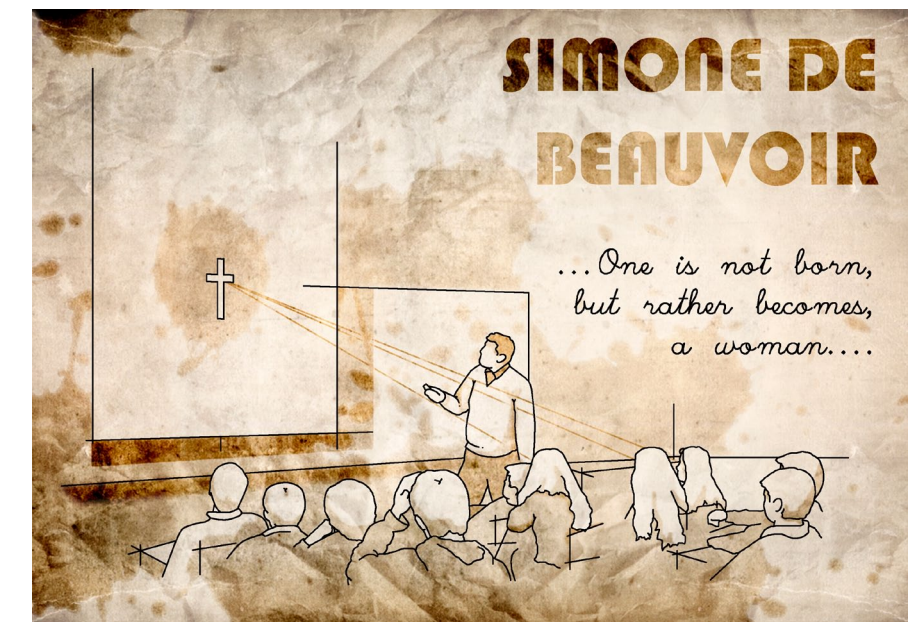 SIMONE DE
BEAUVOIR
...One is not born,
but rather becomes,
a woman....